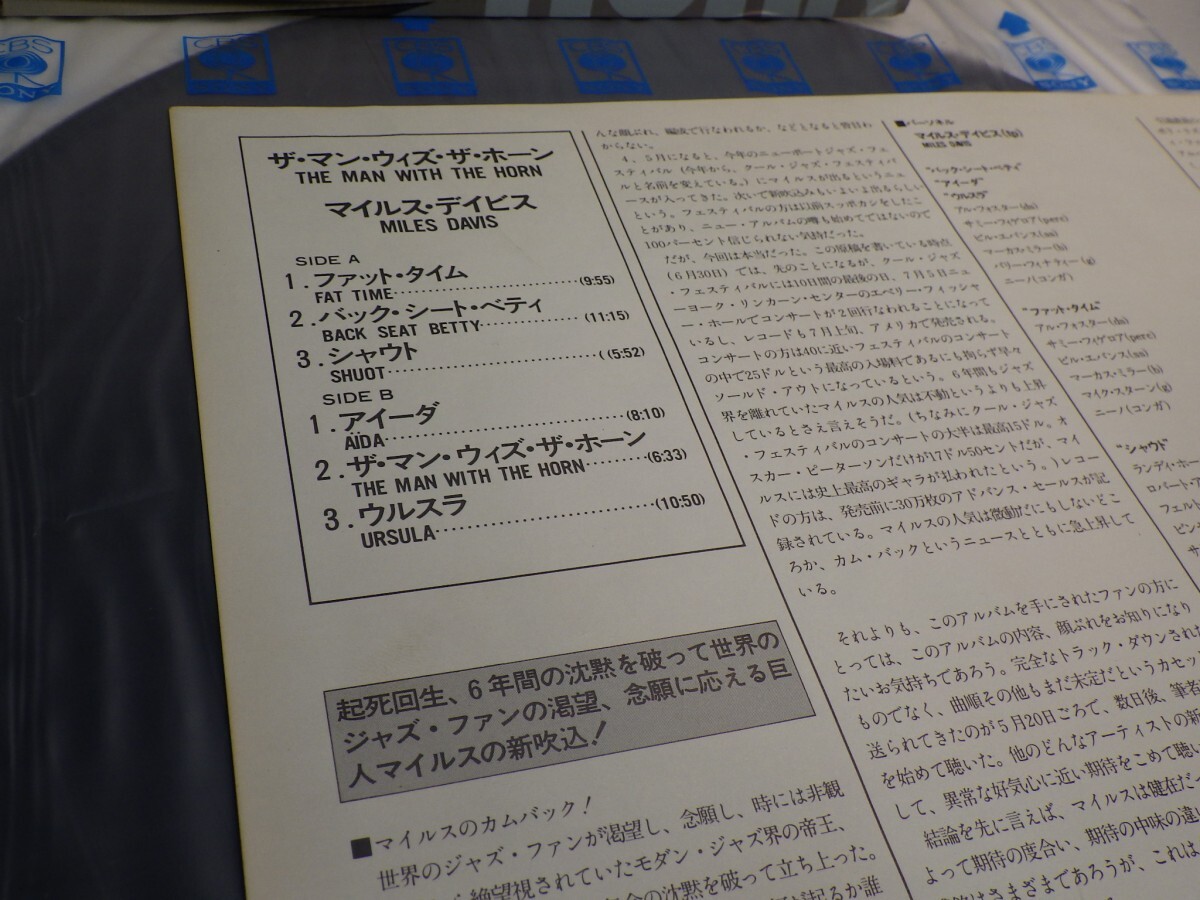 CBS
SONY
ザ・マン・ウィズ・ザ・ホーン
THE MAN WITH THE HORN
マイルス・デイビス
MILES DAVIS
SIDE A
1.ファット・タイム
FAT TIME (9:55)
2.バック・シート・ベティ
BACK SEAT BETTY (11:15)
3.シャウト
SHUOT ( (5:52)
SIDE B
1.アイーダ
AÏDA (8:10)
2.ザ・マン・ウィズ・ザ・ホーン
THE MAN WITH THE HORN (6:33)
3.ウルスラ
URSULA (10:50)
起死回生、6年間の沈黙を破って世界の
ジャズ・ファンの渇望、念願に応える巨
人マイルスの新吹込!
■マイルスのカムバック!
世界のジャズ・ファンが渇望し、念願し、時には非観
絶望視されていたモダン・ジャズ界の帝王、
の沈黙を破って立ち上った。
が起るか誰
んな顔ぶれ、編成で行なわれるか、などとなると皆目わ
からない。
4、5月になると、今年のニューポートジャズ・フェ
スティバル(今年から、クール・ジャズ・フェスティバ
ルと名前を変えている。)にマイルスが出るというニュ
ースが入ってきた。次いで新吹込みもいよいよ出るらしい
という。フェスティバルの方は以前スッポカシをしたこ
とがあり、ニュー・アルバムの噂も始めてではないので
100パーセント信じられない気持だった。
だが、今回は本当だった。この原稿を書いている時点
(6月30日)では、先のことになるが、クール・ジャズ
・フェスティバルには10日間の最後の日、7月5日ニュ
ーヨーク・リンカーン・センターのエベリー・フィッシャ
ー・ホールでコンサートが2回行なわれることになって
いるし、レコードも7月上旬、アメリカで発売される。
コンサートの方は40に近いフェスティバルのコンサート
の中で25ドルという最高の入場料であるにも拘らず早々
ソールド・アウトになっているという。6年間もジャズ
界を離れていたマイルスの人気は不動というよりも上昇
しているとさえ言えそうだ。(ちなみにクール・ジャズ
・フェスティバルのコンサートの大半は最高15ドル。オ
スカー・ピーターソンだけが17ドル50セントだが、マイ
ルスには史上最高のギャラが払われたという。)レコー
ドの方は、発売前に30万枚のアドバンス・セールスが記
録されている。マイルスの人気は微動だにもしないどこ
ろか、カム・バックというニュースとともに急上昇して
いる。
それよりも、このアルバムを手にされたファンの方に
とっては、このアルバムの内容、顔ぶれをお知りになり
たいお気持ちであろう。完全なトラック・ダウンされた
ものでなく、曲順その他もまだ未定だというカセッ
送られてきたのが5月20日ごろで、数日後、筆者
を始めて聴いた。他のどんなアーティストの新
して、異常な好気心に近い期待をこめて聴い
結論を先に言えば、マイルスは健在だっ
よって期待の度合い、期待の中味の違い
はさまざまであろうが、これは
■パーソネル
マイルス・デイビス(tp)
MILES DAVIS
"バック・シート・ベティ"
"アイーダ"
"ウルスラ"
アル・フォスター(ds)
サミー・フィゲロア(perc)
ビル・エバンス(ss)
マーカス・ミラー(b)
バリー・フィナティー(g)
ニーノ(コンガ)
"ファット・タイム"
アル・フォスター(ds)
サミー・フィゲロア(perc)
ビル・エバンス(ss)
マーカス・ミラー(b)
マイク・スターン(g)
ニーノ(コンガ)
"シャウト"
ランディ・ホー
ロバート・ア
フェルト
ビン
サ